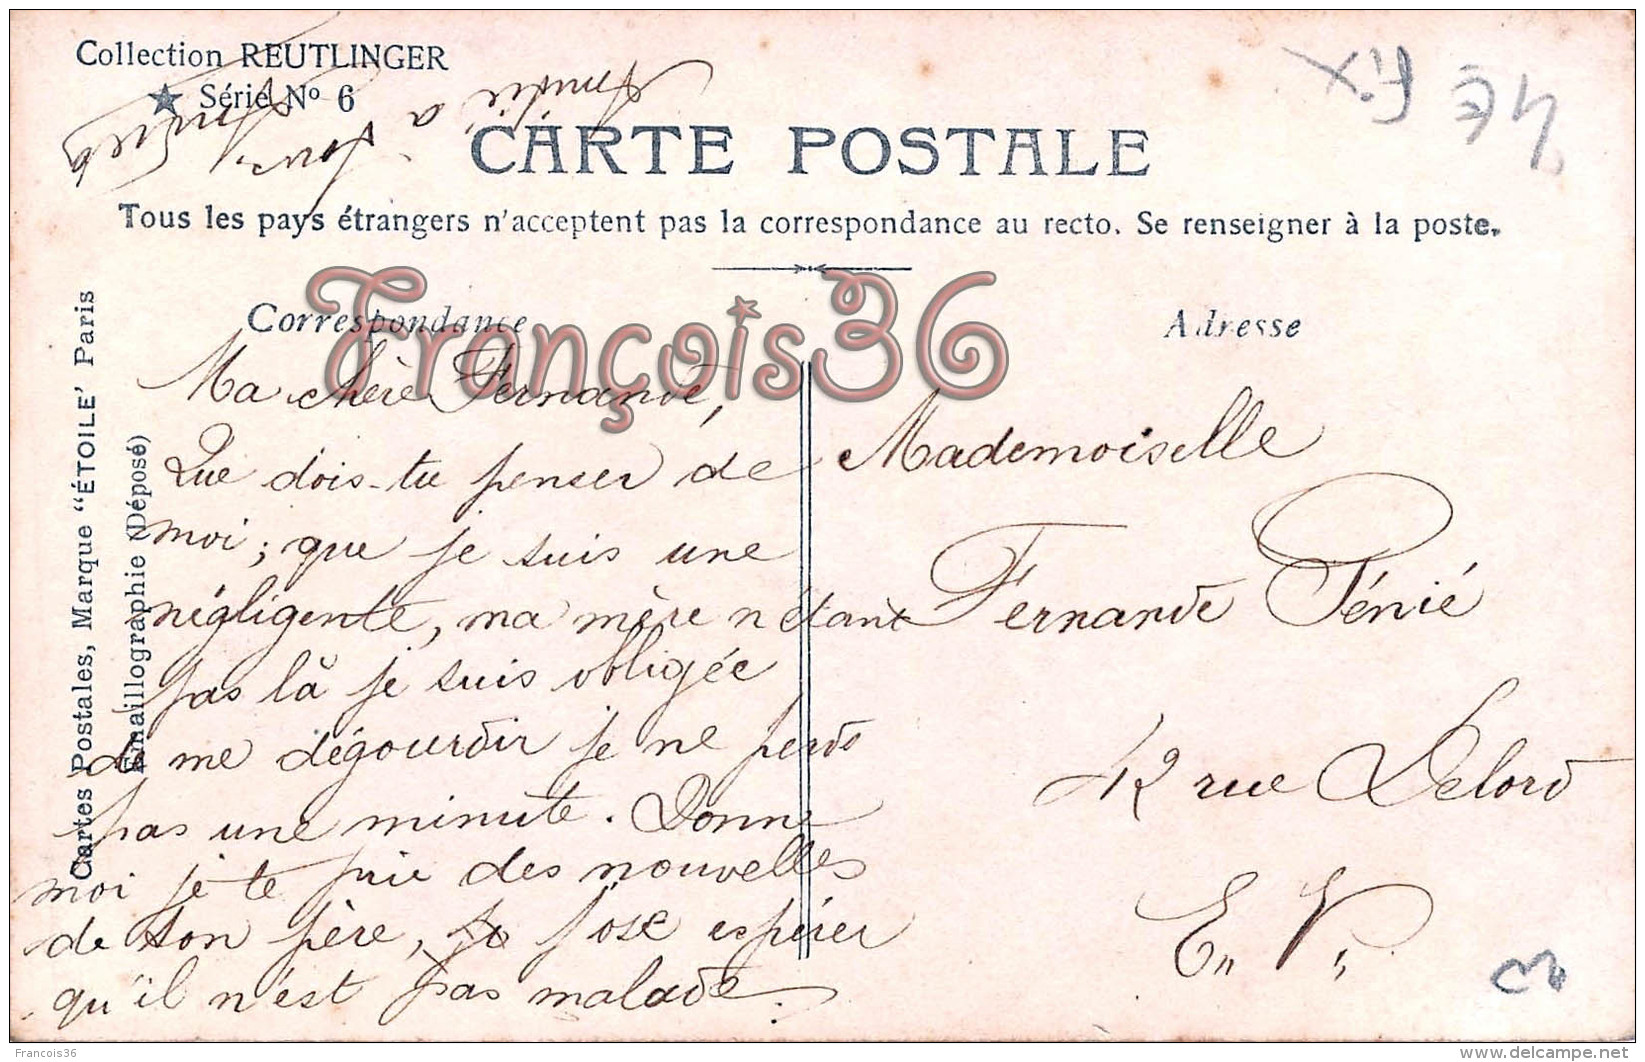 Collection REUTLINGER
★ Série Nº 6
CARTE POSTALE
Tous les pays étrangers n'acceptent pas la correspondance au recto. Se renseigner à la poste.
Correspondance
Adresse
François36
Cartes Postales, Marque "ÉTOILE" Paris
Émaillographie (Déposé)
Ma chère Fernande,
Que dois-tu penser de
moi; que je suis une
négligente, ma mère n'étant
pas là je suis obligée
de me dégourdir je ne perds
pas une minute. Donne
moi je te prie des nouvelles
de ton père, j'ose espérer
qu'il n'est pas malade.
Mademoiselle
Fernande Pénié
42 rue Delord
En V.
Amitié à
tous
Francois36
delcampe.net